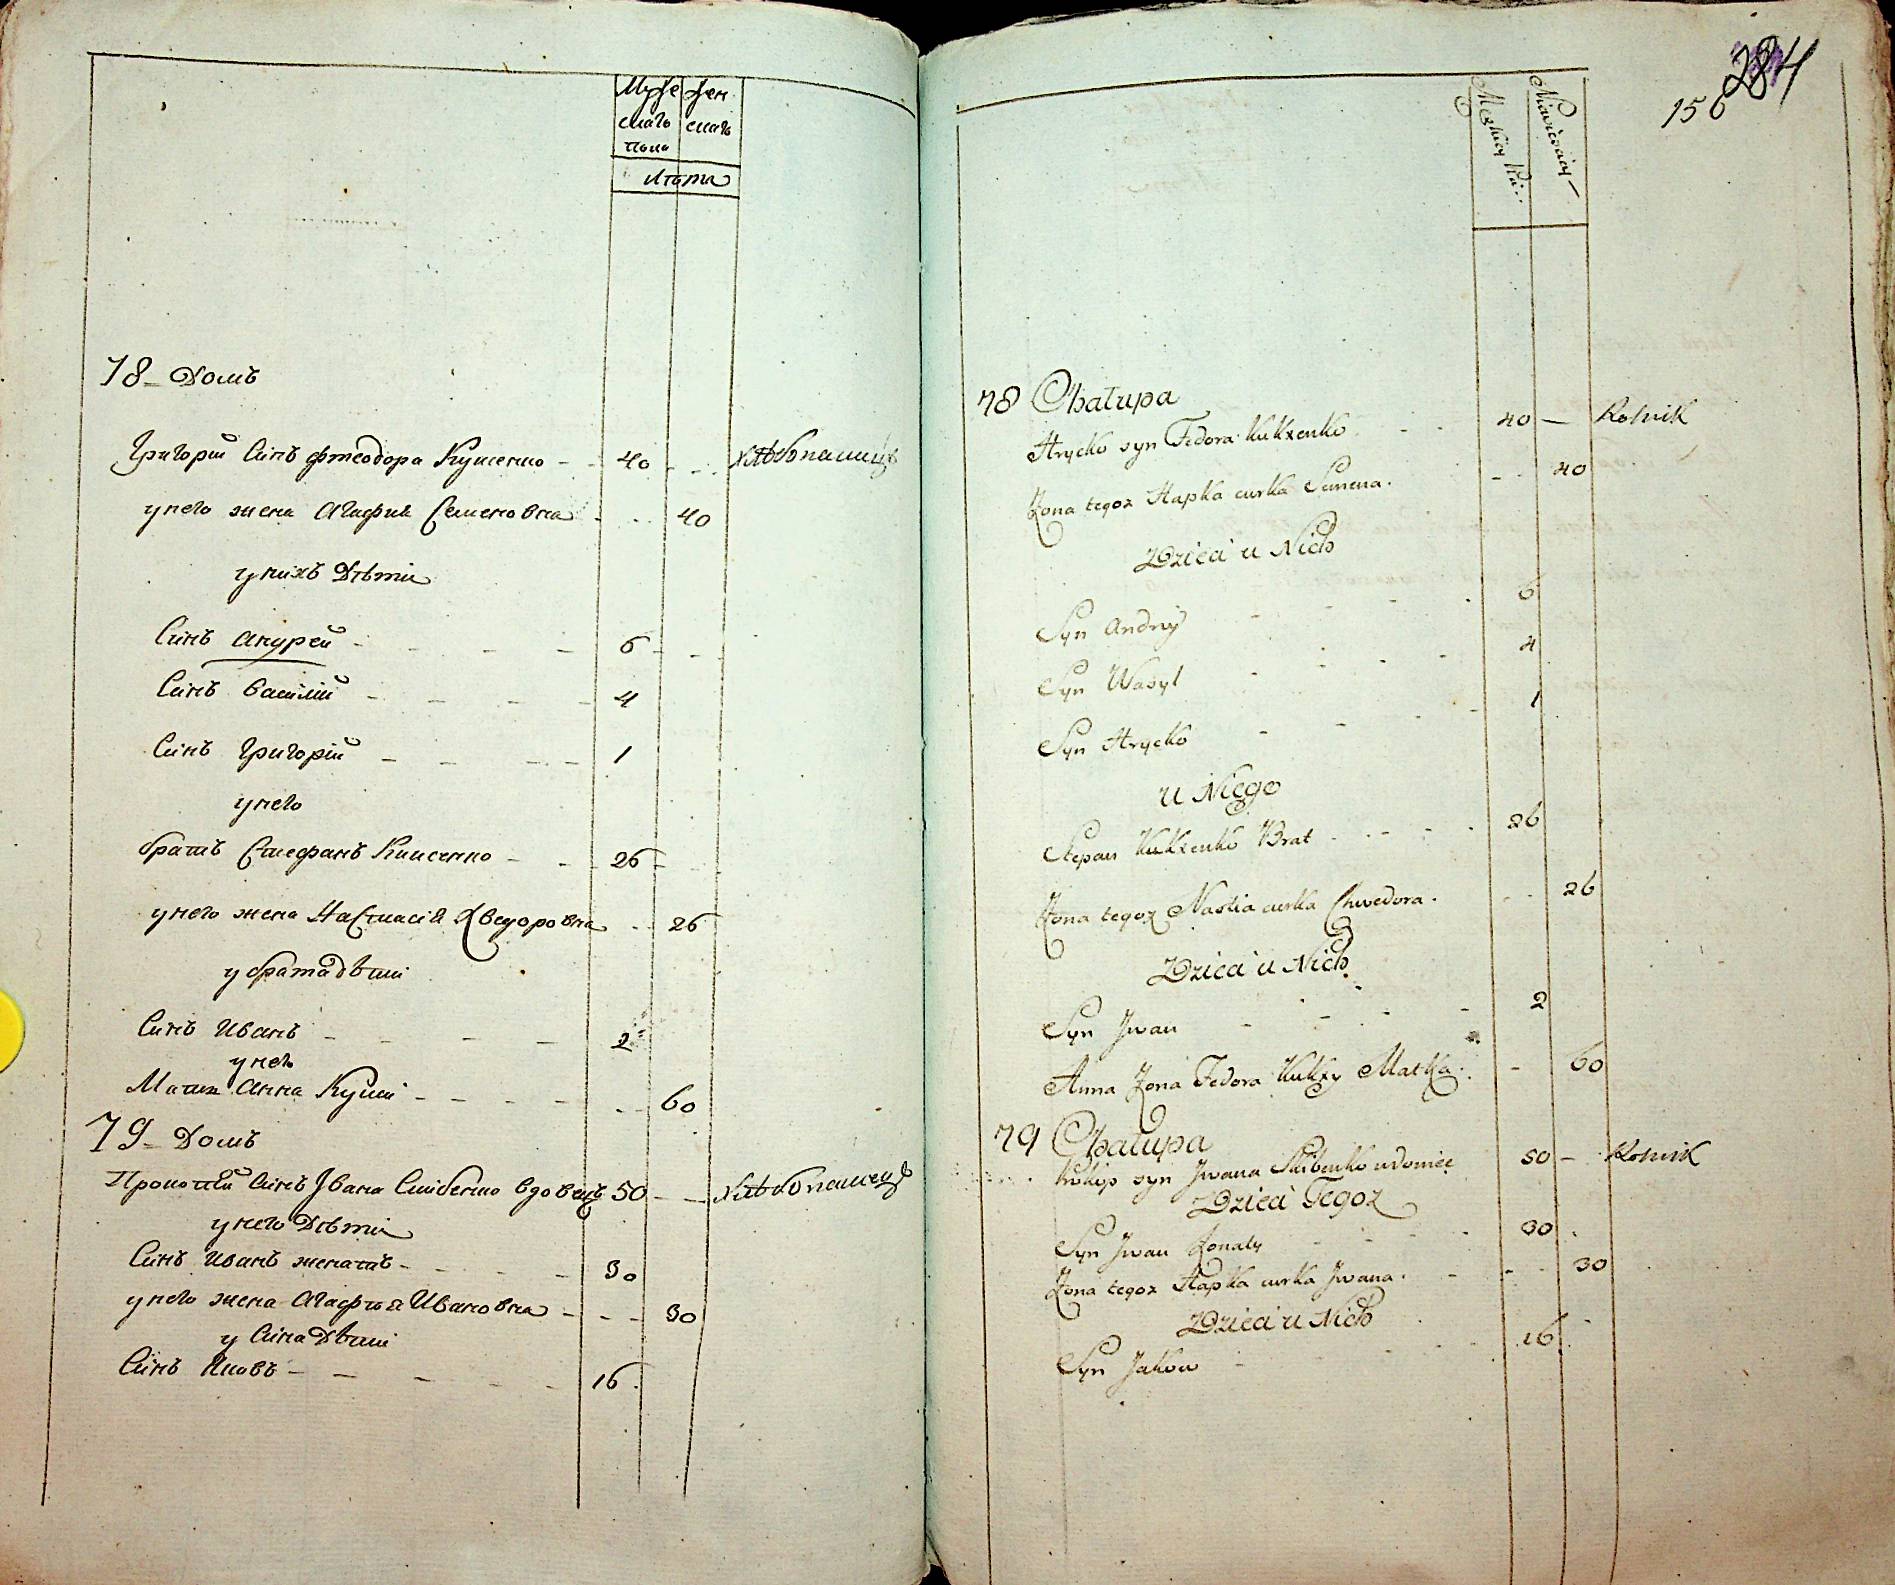 Муже жен
скагъ скагъ
пола
лѣта
78 Домъ
Григорій Синъ фтеодора Кукѣенко 40 хлѣбопашецъ
у него жена Агафия Семеновна 40
у нихъ Дѣти
Синъ Андрей 6
Синъ Василій 4
Синъ Григорій 1
у него
братъ Стефанъ Куксенко 26
у него жена Настасія Хведоровна 26
у брата дѣти
Синъ Иванъ 2
у него
Мать Анна Кукси 60
79 Домъ
Прокопій Синъ Ивана Скибенко вдовецъ 50 хлѣбопашецъ
у него Дѣти
Синъ Иванъ женатъ 30
у него жена Агафія Ивановна 30
у Сина Дѣти
Синъ Яковъ 16
284
156
78 Chałupa
Hrycko syn Fedora Kukxenko 40 — Rolnik
Żona tegoż Hapka curka Semena 40
Dzieci u Nich
Syn Andrij 6
Syn Wasyl 4
Syn Hrycko 1
u Niego
Stepan Kukxenko Brat 26
Żona tegoż Nastia curka Chwedora 26
Dzieci u Nich
Syn Jwan 2
Anna Żona Fedora Kukxy Matka 60
79 Chałupa
Prokip syn Jwana Skibenko wdowiec 50 — Rolnik
Dzieci Tegoż
Syn Jwan Żonaty 30
Żona tegoż Hapka curka Jwana 30
Dzieci u Nich
Syn Jakow 16